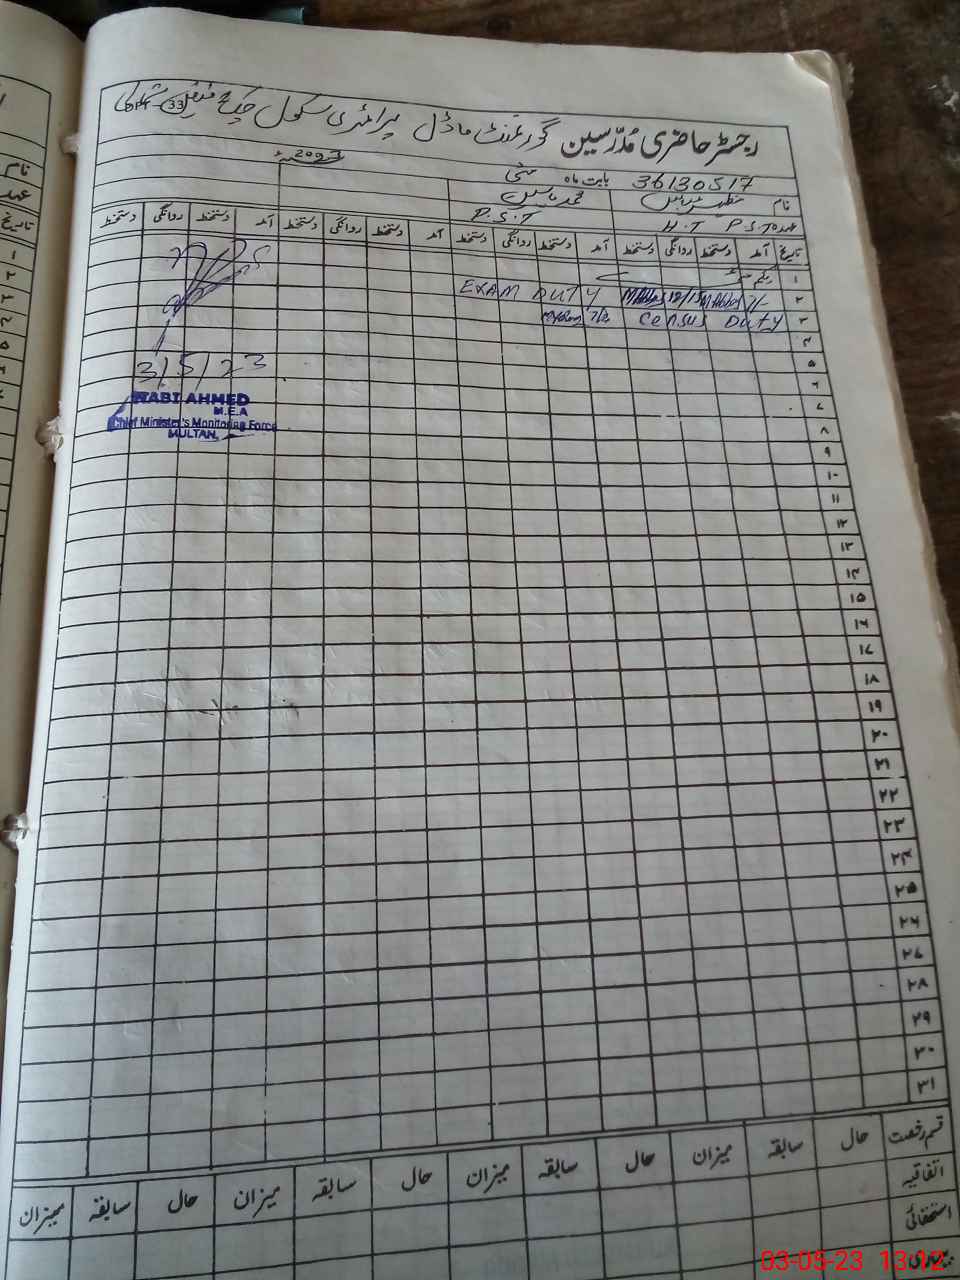 رجسٹر حاضری مُدرّسین گورنمنٹ ماڈل پرائمری سکول
36130517 بابت ماہ مئی 2023
نام محمد یاسین
عہدہ P.S.T H.T P.S.T
تاریخ آمد دستخط روانگی دستخط آمد دستخط روانگی دستخط آمد دستخط روانگی دستخط آمد دستخط روانگی دستخط
۱ یکم مئی
۲ EXAM DUTY
۳ Census Duty
۴
۵
۶
۷
۸
۹
۱۰
۱۱
۱۲
۱۳
۱۴
۱۵
۱۶
۱۷
۱۸
۱۹
۲۰
۲۱
۲۲
۲۳
۲۴
۲۵
۲۶
۲۷
۲۸
۲۹
۳۰
۳۱
3/5/23
NABI AHMED
M.E.A
Chief Minister's Monitoring Force
MULTAN
قسم رخصت حال سابقہ میزان حال سابقہ میزان حال سابقہ میزان حال سابقہ میزان
اتفاقیہ
استحقاقی
بیماری
نام
عہد
تاریخ
۱
۲
۳
۴
۵
۶
03-05-23 13:12